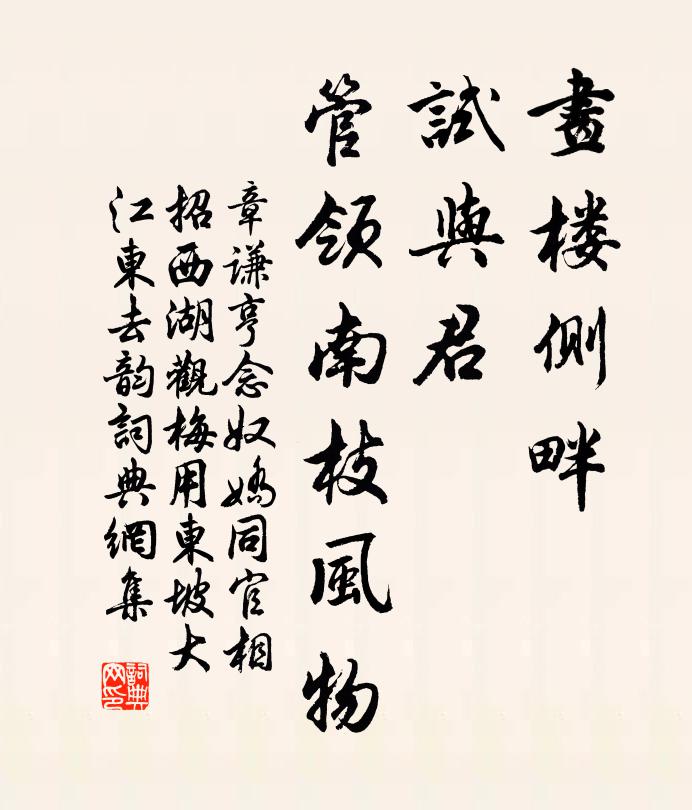 畫楼側畔
試與君
管領南枝風物
章謙亨念奴嬌同官相
招西湖觀梅用東坡大
江東去韵詞典網集
詞典網印